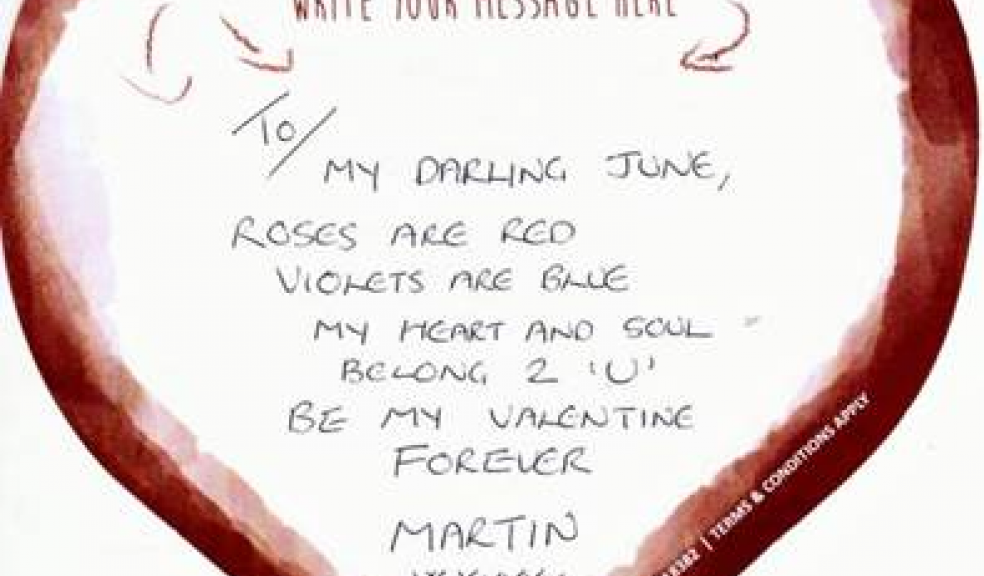 WRITE YOUR MESSAGE HERE
TO/
MY DARLING JUNE,
ROSES ARE RED
VIOLETS ARE BLUE
MY HEART AND SOUL
BELONG 2 'U'
BE MY VALENTINE
FOREVER
MARTIN
8382 | TERMS & CONDITIONS APPLY